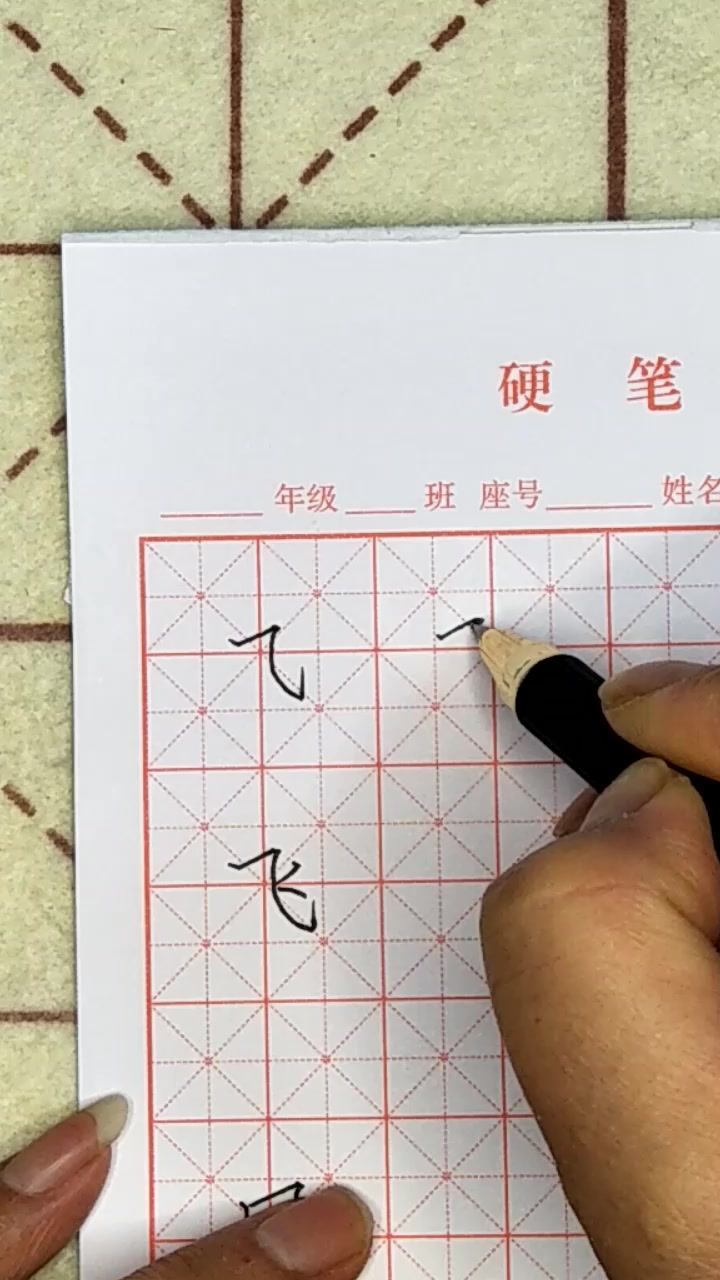 硬 笔
年级 班 座号 姓名
乁
飞